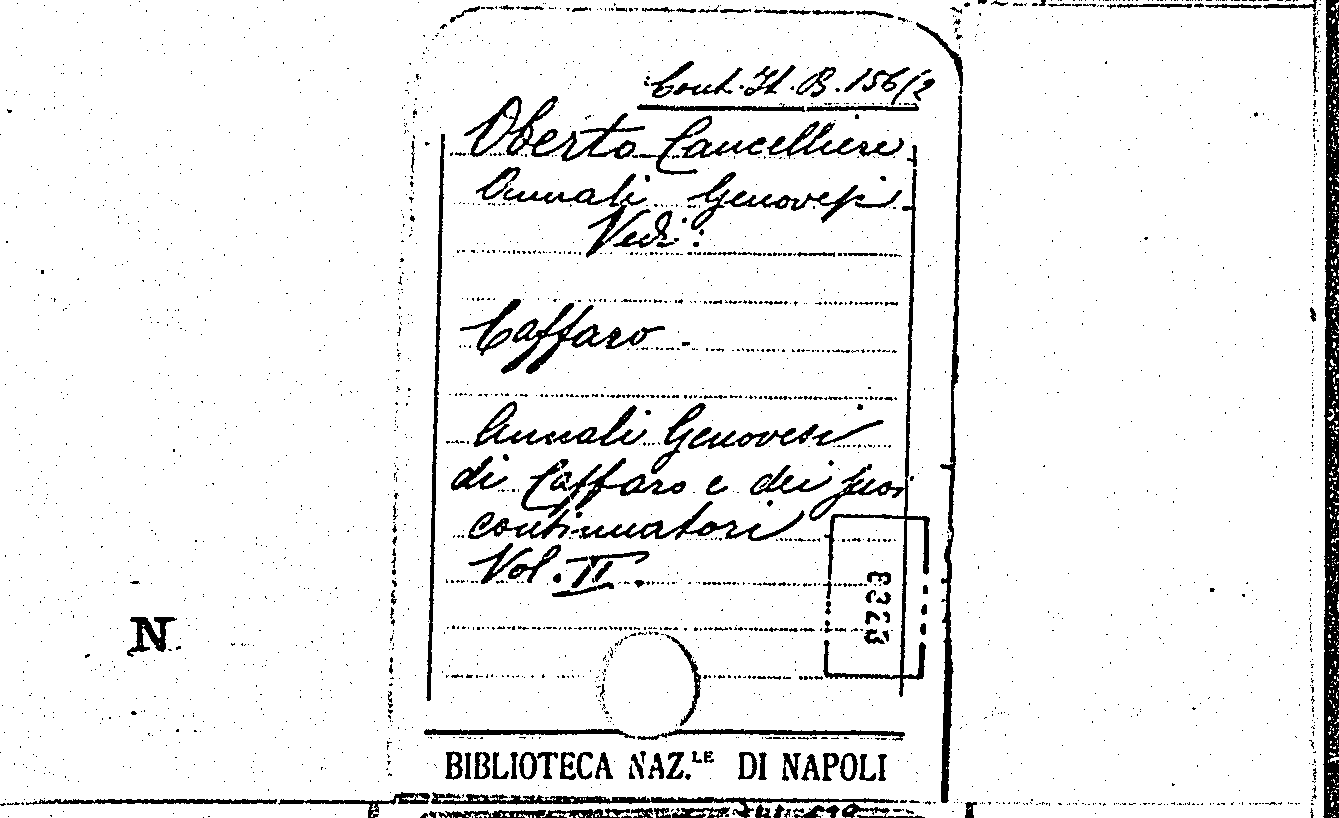 Cont. It. B. 156/2
Oberto Cancelliere
Annali Genovesi.
Vedi:
Caffaro.
Annali Genovesi
di Caffaro e dei suoi
continuatori
Vol. II.
N
BIBLIOTECA NAZ.LE DI NAPOLI